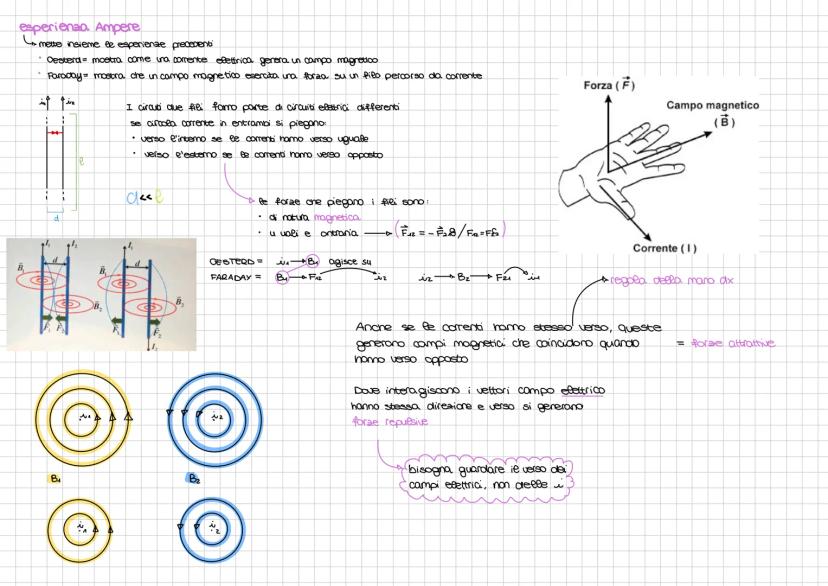 esperienza Ampere
metto insieme le esperienze precedenti
· Oesterd = mostra come una corrente elettrica genera un campo magnetico
· Faraday = mostra che un campo magnetico esercita una forza su un filo percorso da corrente
i₁ i₂
I circuiti due fili fanno parte di circuiti elettrici differenti
se circola corrente in entrambi si piegano:
· verso l'interno se le correnti hanno verso uguale
· verso l'esterno se le correnti hanno verso opposto
l
d
d << l
le forze che piegano i fili sono:
· di natura magnetica
F₁₂ = - F₂
Forza (F)
Campo magnetico
(B)
Corrente (I)
I₁ I₂ I₁
d d
B₁ B₁
B₂ B₂
F₁ F₂ F₁ F₂
I₂
OESTERD = i₁ → B₁ agisce su
FARADAY = B₁ → F₁₂ i₂
i₂ → B₂ → F₂₁ i₁
regola della mano dx
Anche se le correnti hanno stesso verso, queste
generano campi magnetici che coincidono quando = forze attrattive
hanno verso opposto
Dove interagiscono i vettori campo elettrico
hanno stessa direzione e verso si generano
forze repulsive
bisogna guardare il verso dei
campi elettrici, non delle i
i₁ i₂
B₁ B₂
i₁ i₂